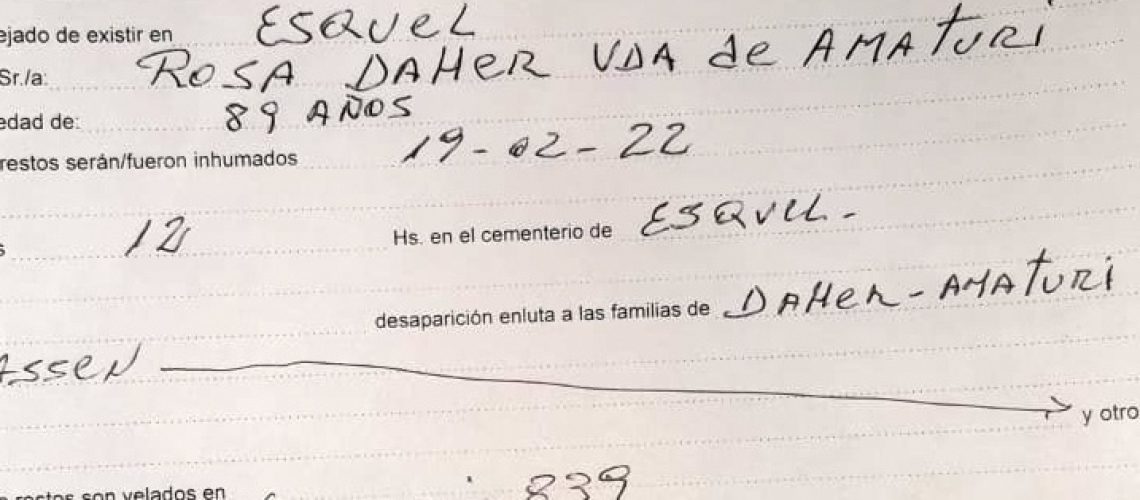 ejado de existir en ESQUEL
Sr./a: ROSA DAHER VDA de AMATURI
edad de: 89 AÑOS
restos serán/fueron inhumados 19-02-22
s 12 Hs. en el cementerio de ESQUEL.-
desaparición enluta a las familias de DAHER-AMATURI
ASSEN y otro
restos son velados en 839